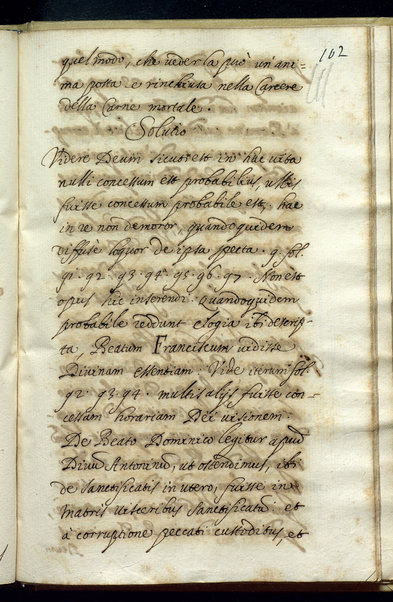 102
quel modo, che veder la può un ani=
ma posta e rinchiusa nella Carcere
della Carne mortale.
Solutio
Videre Deum sicuti est in hac vita
nulli concessum est probabilius, ullis
fuisse concessum probabile est; hac
in re non demoror, quandoquidem
diffuse loquor de ista specta. q. fol.
91. 92. 93. 94. 95. 96. 97. Non est
opus hic inserendi. quandoquidem
probabile reddunt elogia ibi descrip-
ta, Beatum Franciscum vidisse
Divinam essentiam: Vide iterum fol.
92. 93. 94. multis alijs fuisse con-
cessam horariam Dei visionem.
De Beato Dominico legitur apud
Divum Antoninum, ut ostendimus, ibi
de sanctificatis in utero, fuisse in
matris visceribus sanctificatum et
à corruptione peccati custoditus, et